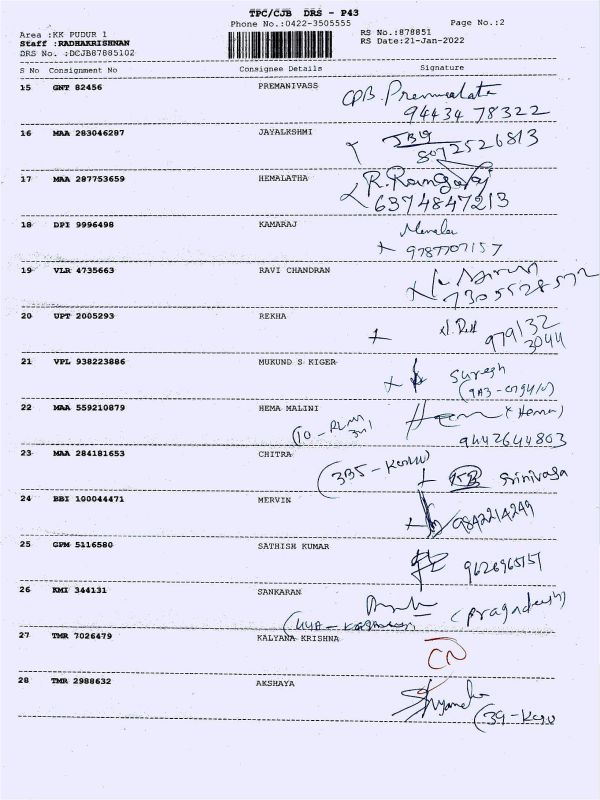 TPC/CJB DRS - P43
Phone No.:0422-3505555
Page No.:2
Area :KK PUDUR 1
RS No.:878851
Staff :RADHAKRISHNAN
RS Date:21-Jan-2022
DRS No. :DCJB87885102
S No Consignment No Consignee Details Signature
15 GNT 82456 PREMANIVASS
CPB. Premalata
94434 78322
16 MAA 283046287 JAYALKSHMI
8072526813
17 MAA 287753659 HEMALATHA
R. Rangaraj
6374847213
18 DPI 9996498 KAMARAJ
9787707157
19 VLR 4735663 RAVI CHANDRAN
7305528572
20 UPT 2005293 REKHA
979132
3044
21 VPL 938223886 MUKUND S KIGER
Suresh
22 MAA 559210879 HEMA MALINI
(Hema)
9442644803
23 MAA 284181653 CHITRA
Srinivasa
24 BBI 100044471 MERVIN
9842214249
25 GPM 5116580 SATHISH KUMAR
26 KMI 344131 SANKARAN
(Pragadeesh)
27 TMR 7026479 KALYANA KRISHNA
28 TMR 2988632 AKSHAYA